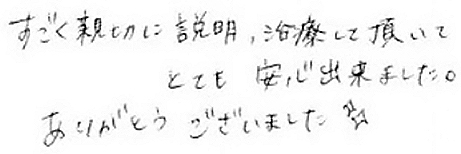 すごく親切に説明,治療して頂いて
とても 安心出来ました。
ありがとう ございました☆